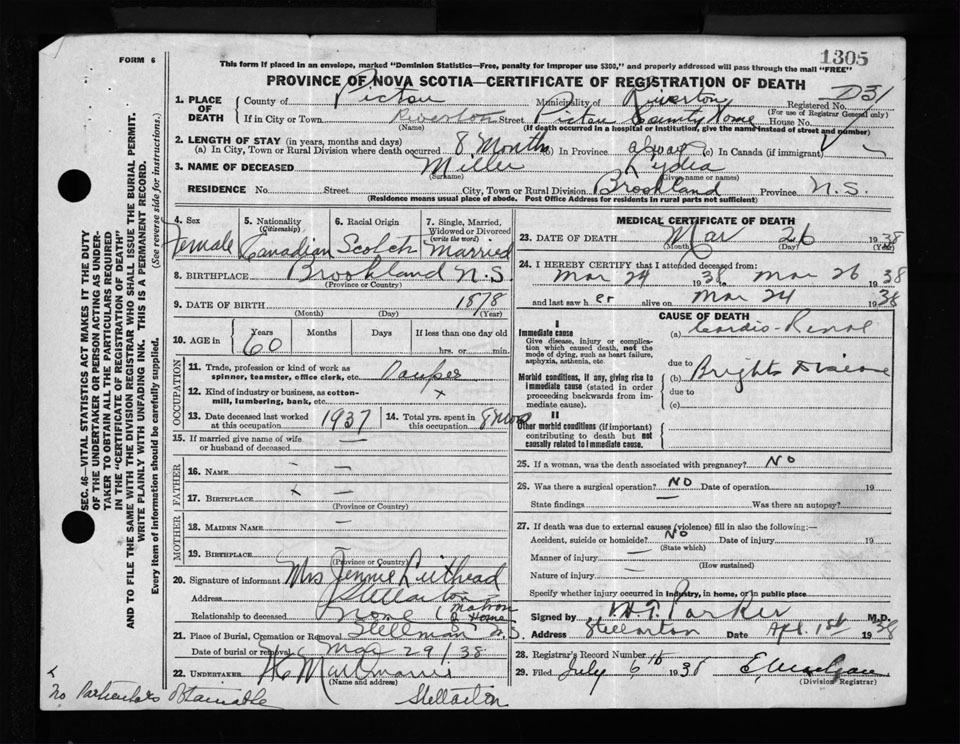 FORM 6
1305
This form if placed in an envelope, marked "Dominion Statistics—Free, penalty for improper use $300," and properly addressed will pass through the mail "FREE"
PROVINCE OF NOVA SCOTIA—CERTIFICATE OF REGISTRATION OF DEATH
D31
1. PLACE OF DEATH County of Pictou Municipality of Riverton Registered No.
(For use of Registrar General only)
If in City or Town Riverton Street Pictou County Home House No.
(Name) (If death occurred in a hospital or institution, give the name instead of street and number)
2. LENGTH OF STAY (in years, months and days)
(a) In City, Town or Rural Division where death occurred 8 Months (b) In Province always (c) In Canada (if immigrant)
3. NAME OF DECEASED Miller Lydia
(Surname) (Given name or names)
RESIDENCE No. Street City, Town or Rural Division Brookland Province N.S.
(Residence means usual place of abode. Post Office Address for residents in rural parts not sufficient)
4. Sex Female
5. Nationality (Citizenship) Canadian
6. Racial Origin Scotch
7. Single, Married, Widowed or Divorced (write the word) Married
8. BIRTHPLACE Brookland N.S.
(Province or Country)
9. DATE OF BIRTH 1878
(Month) (Day) (Year)
10. AGE in Years 60 Months Days If less than one day old
hrs. or min.
OCCUPATION
11. Trade, profession or kind of work as spinner, teamster, office clerk, etc. Pauper
12. Kind of industry or business, as cotton-mill, lumbering, bank, etc. x
13. Date deceased last worked at this occupation 1937
14. Total yrs. spent in this occupation 8 mos
15. If married give name of wife or husband of deceased —
FATHER
16. NAME – –
17. BIRTHPLACE x —
(Province or Country)
MOTHER
18. MAIDEN NAME —
19. BIRTHPLACE —
(Province or Country)
20. Signature of informant Mrs Jennie
Address Stellarton
Relationship to deceased None (Matron of Home
21. Place of Burial, Cremation or Removal N.S.
Date of burial or removal Mar 29/38
22. UNDERTAKER
(Name and Address)
Stellarton
No Particulars Obtainable
MEDICAL CERTIFICATE OF DEATH
23. DATE OF DEATH Mar 26 1938
(Month) (Day) (Year)
24. I HEREBY CERTIFY that I attended deceased from:
Mar 24 1938 Mar 26 1938
and last saw her alive on Mar 24 1938
CAUSE OF DEATH
I
Immediate cause
Give disease, injury or complication which caused death, not the mode of dying, such as heart failure, asphyxia, asthenia, etc.
(a) Cardio-Renal
due to
Morbid conditions, if any, giving rise to immediate cause (stated in order proceeding backwards from immediate cause)
(b) Brights Disease
due to
(c)
II
Other morbid conditions (if important) contributing to death but not causally related to immediate cause.
25. If a woman, was the death associated with pregnancy? NO
26. Was there a surgical operation? NO Date of operation 19
State findings Was there an autopsy?
27. If death was due to external causes (violence) fill in also the following:—
Accident, suicide or homicide? NO Date of injury 19
(State which)
Manner of injury —
(How sustained)
Nature of injury —
Specify whether injury occurred in industry, in home, or in public place
Signed by Parker M.D.
Address Stellarton Date Apl. 1st 1938
28. Registrar's Record Number
29. Filed July 6th 1938
(Division Registrar)
SEC. 46—VITAL STATISTICS ACT MAKES IT THE DUTY
OF THE UNDERTAKER OR PERSON ACTING AS UNDER-
TAKER TO OBTAIN ALL THE PARTICULARS REQUIRED
IN THE "CERTIFICATE OF REGISTRATION OF DEATH"
AND TO FILE THE SAME WITH THE DIVISION REGISTRAR WHO SHALL ISSUE THE BURIAL PERMIT.
WRITE PLAINLY WITH UNFADING INK. THIS IS A PERMANENT RECORD.
Every item of information should be carefully supplied. (See reverse side for instructions.)